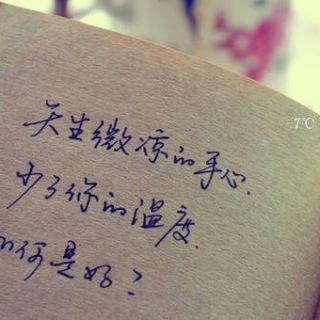 天生微凉的手心.
少了你的温度.
如何是好?
-7℃